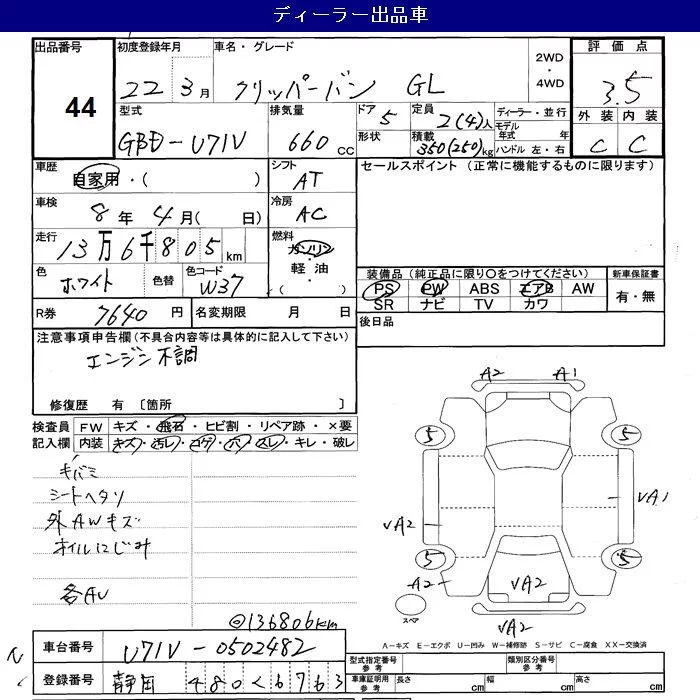 ディーラー出品車
出品番号 初度登録年月 車名・グレード 2WD ・ 4WD 評価点
44 22年3月 クリッパーバン GL 3.5
型式 排気量 ドア 定員 ディーラー・並行 外装 内装
GBD-U71V 660cc 5 2(4)人 モデル年式 年 C C
形状 積載 350(250)kg ハンドル 左・右
車歴 自家用・( ) シフト AT セールスポイント (正常に機能するものに限ります)
車検 8年4月( 日) 冷房 AC
走行 13万6千805km 燃料 ガソリン・軽油・( )
色 ホワイト 色替 色コード W37 装備品(純正品に限り〇をつけてください) 新車保証書
PS PW ABS エアB AW 有・無
SR ナビ TV カワ
R券 7640円 名変期限 月 日 後日品
注意事項申告欄(不具合内容等は具体的に記入して下さい)
エンジン不調
修復歴 有〔箇所 〕
検査員 FW キズ・飛石・ヒビ割・リペア跡・×要
記入欄 内装 キズ・汚レ・コゲ・穴・スレ・キレ・破レ
キバミ
シートヘタリ
外AWキズ
オイルにじみ
各AU
◎136806km
A2 A1
5 5
VA1
VA2
5 5
A2 VA2
スペア
VA2
A-キズ E-エクボ U-凹み W-補修跡 S-サビ C-腐食 XX-交換済
車台番号 U71V-0502482 型式指定番号 参考 類別区分番号 参考
登録番号 静岡 480 く 6763 車庫証明用 参考 長さ cm 幅 cm 高さ cm